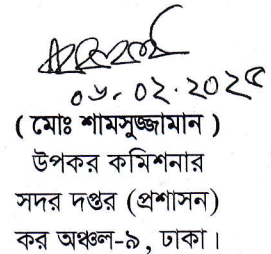 ০৬.০২.২০২৫
( মোঃ শামসুজ্জামান )
উপকর কমিশনার
সদর দপ্তর (প্রশাসন)
কর অঞ্চল-৯, ঢাকা।